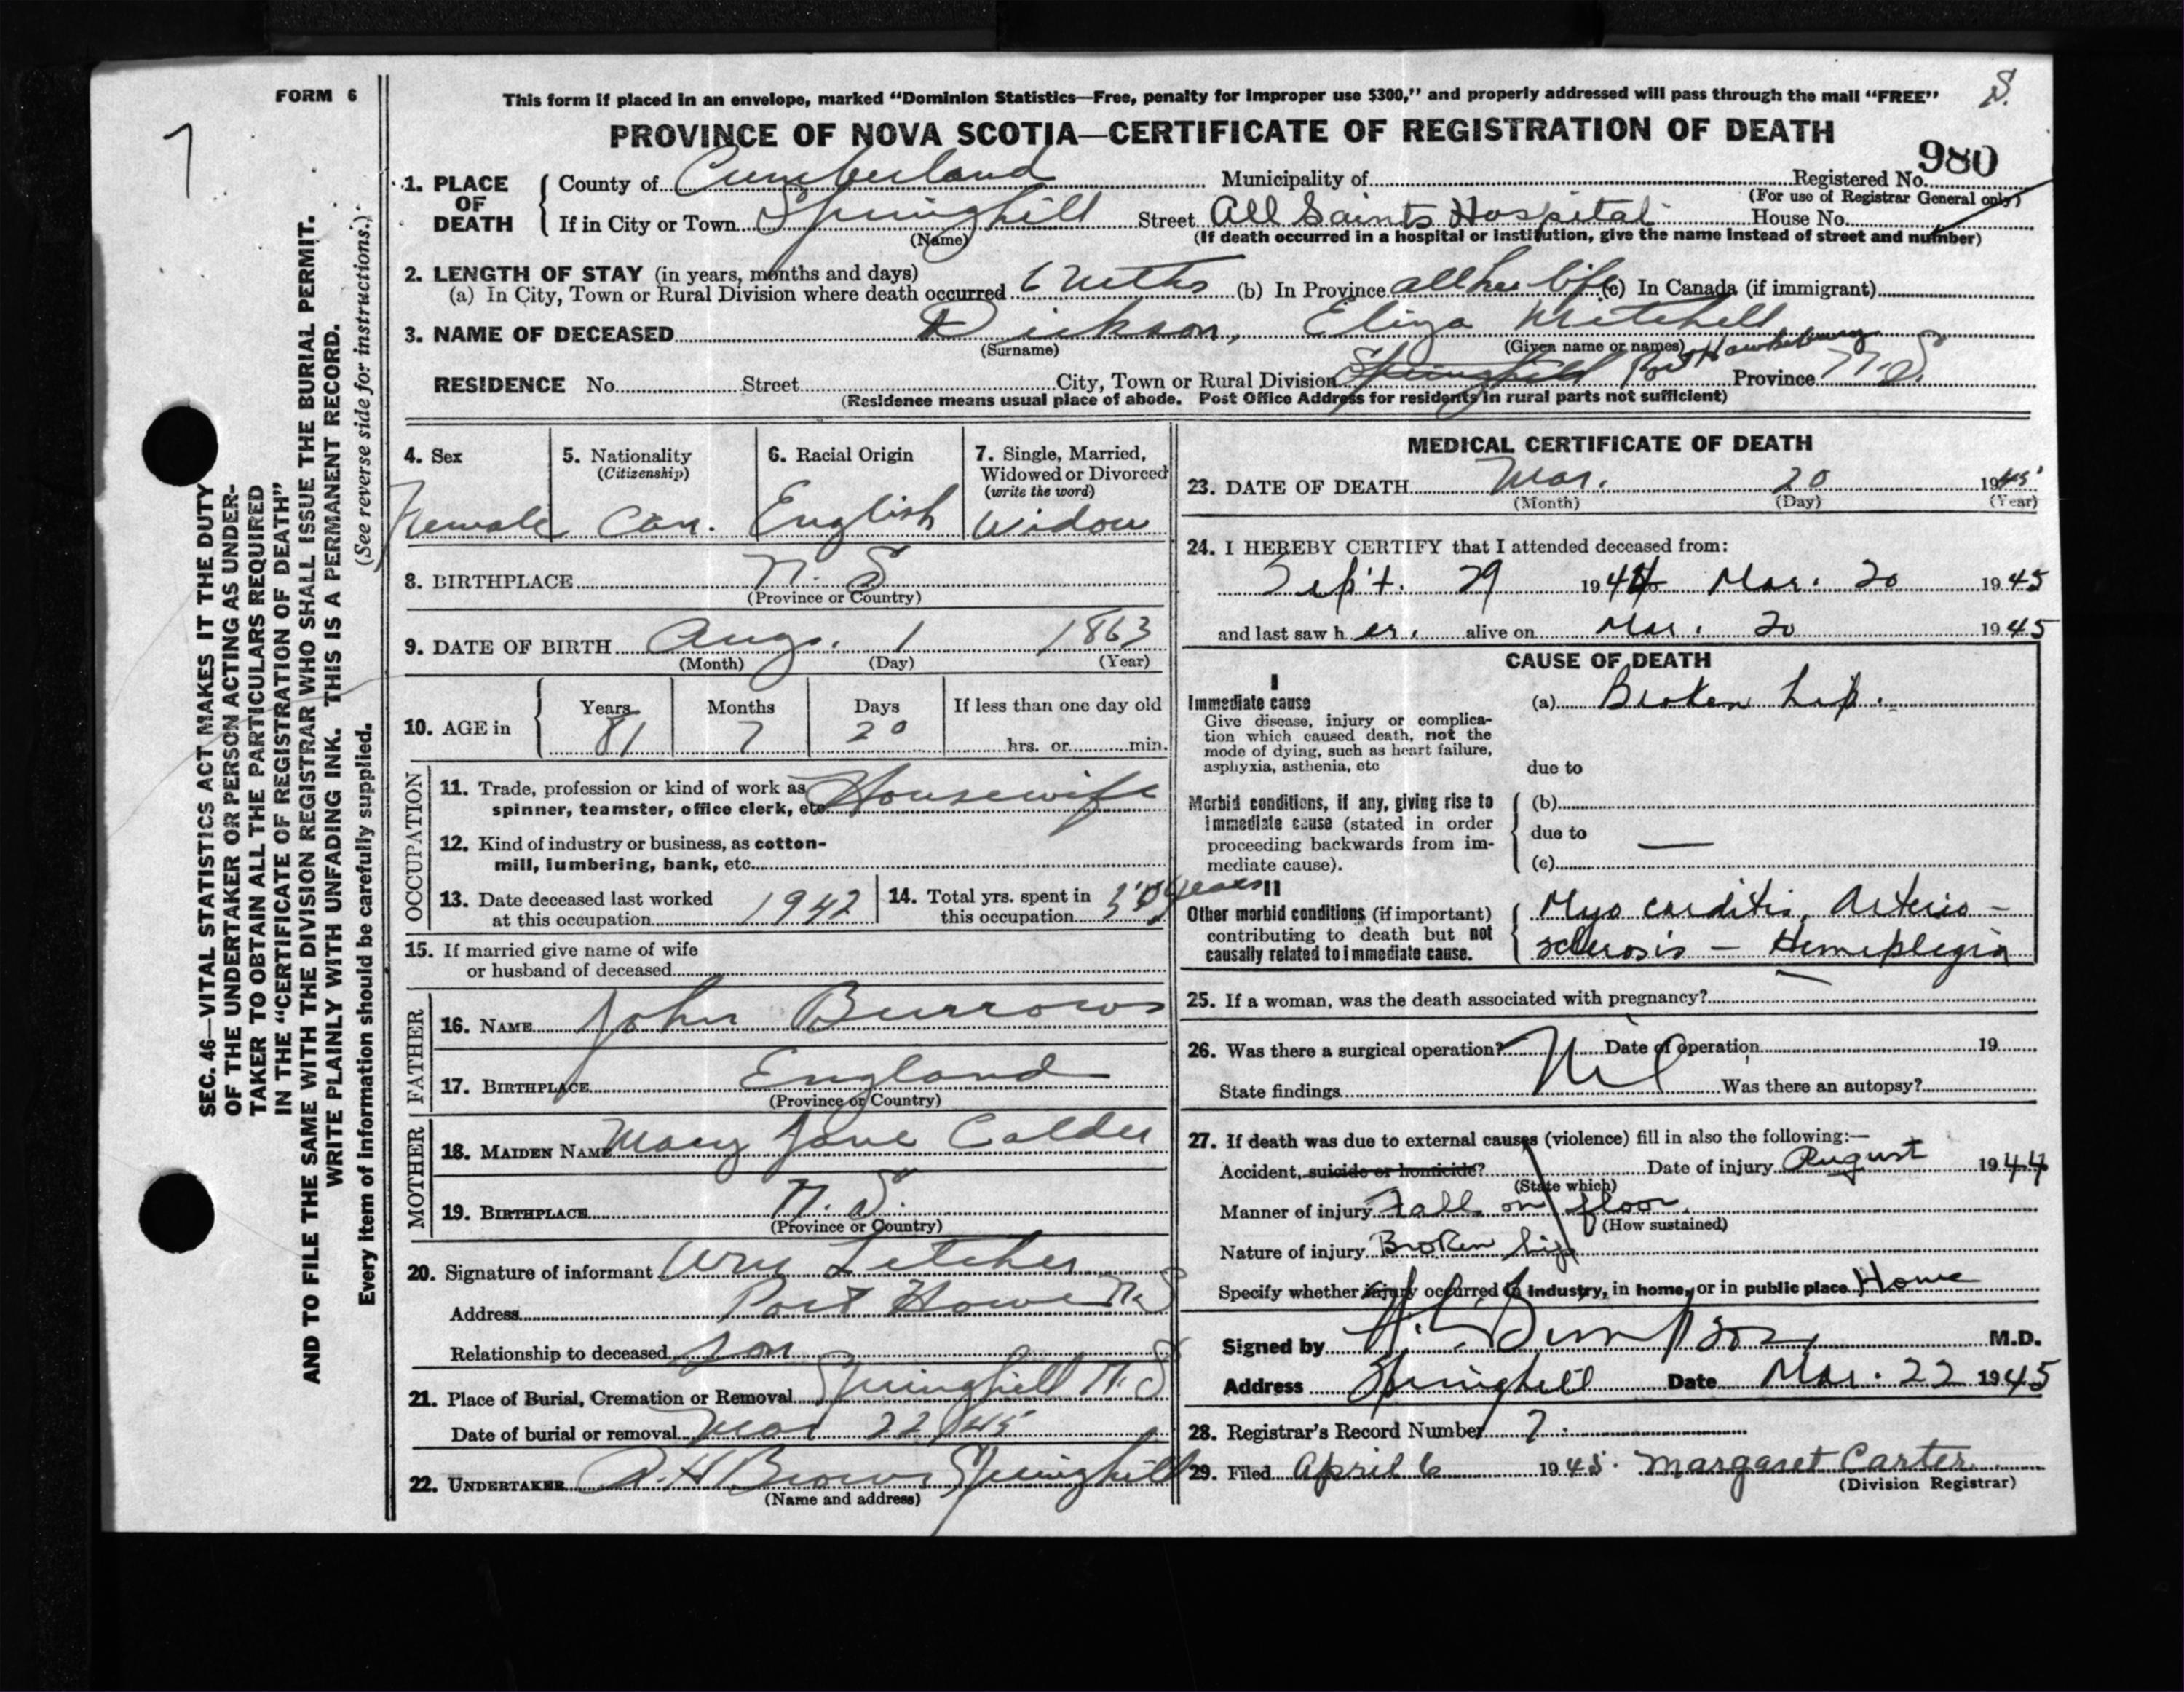 FORM 6
7
S.
This form if placed in an envelope, marked "Dominion Statistics—Free, penalty for improper use $300," and properly addressed will pass through the mail "FREE"
PROVINCE OF NOVA SCOTIA—CERTIFICATE OF REGISTRATION OF DEATH
980
1. PLACE OF DEATH { County of Cumberland Municipality of Registered No.
(For use of Registrar General only)
If in City or Town Springhill Street All Saints Hospital House No.
(Name) (If death occurred in a hospital or institution, give the name instead of street and number)
2. LENGTH OF STAY (in years, months and days)
(a) In City, Town or Rural Division where death occurred 6 mths (b) In Province all her life (c) In Canada (if immigrant)
3. NAME OF DECEASED Dickson, Eliza Mitchell
(Surname) (Given name or names)
RESIDENCE No. Street City, Town or Rural Division Springhill Port Hawkesbury Province N.S.
(Residence means usual place of abode. Post Office Address for residents in rural parts not sufficient)
4. Sex 5. Nationality 6. Racial Origin 7. Single, Married,
(Citizenship) Widowed or Divorced
(write the word)
Female Can. English Widow
8. BIRTHPLACE N. S
(Province or Country)
9. DATE OF BIRTH Aug. 1 1863
(Month) (Day) (Year)
10. AGE in { Years Months Days If less than one day old
81 7 20 hrs. or min.
OCCUPATION
11. Trade, profession or kind of work as Housewife
spinner, teamster, office clerk, etc.
12. Kind of industry or business, as cotton-
mill, lumbering, bank, etc.
13. Date deceased last worked 14. Total yrs. spent in
at this occupation 1942 this occupation years
15. If married give name of wife
or husband of deceased
FATHER
16. NAME John Burrows
17. BIRTHPLACE England
(Province or Country)
MOTHER
18. MAIDEN NAME Mary Jane Calder
19. BIRTHPLACE N. S.
(Province or Country)
20. Signature of informant Wm Letcher
Address Port Howe N.S
Relationship to deceased son
21. Place of Burial, Cremation or Removal Springhill N.S
Date of burial or removal Mar 22/45
22. UNDERTAKER A.H Brown Springhill
(Name and address)
MEDICAL CERTIFICATE OF DEATH
23. DATE OF DEATH Mar. 20 1945
(Month) (Day) (Year)
24. I HEREBY CERTIFY that I attended deceased from:
Sept. 29 1944 Mar. 20 1945
and last saw h er. alive on Mar. 20 1945
CAUSE OF DEATH
I
Immediate cause (a) Broken hip.
Give disease, injury or complica-
tion which caused death, not the
mode of dying, such as heart failure,
asphyxia, asthenia, etc due to
Morbid conditions, if any, giving rise to (b)
immediate cause (stated in order due to —
proceeding backwards from im-
mediate cause). (c)
II
Other morbid conditions (if important) Myo carditis, Arterio-
contributing to death but not
causally related to immediate cause. sclerosis — Hemiplegia
25. If a woman, was the death associated with pregnancy?
26. Was there a surgical operation? Nil Date of operation 19
State findings Was there an autopsy?
27. If death was due to external causes (violence) fill in also the following:—
Accident, suicide or homicide? Date of injury August 1944
(State which)
Manner of injury Fall on floor.
(How sustained)
Nature of injury Broken hip
Specify whether injury occurred in industry, in home, or in public place Home
Signed by M.D.
Address Springhill Date Mar. 22 1945
28. Registrar's Record Number 7.
29. Filed April 6 1945. Margaret Carter
(Division Registrar)
SEC. 46—VITAL STATISTICS ACT MAKES IT THE DUTY
OF THE UNDERTAKER OR PERSON ACTING AS UNDER-
TAKER TO OBTAIN ALL THE PARTICULARS REQUIRED
IN THE "CERTIFICATE OF REGISTRATION OF DEATH"
AND TO FILE THE SAME WITH THE DIVISION REGISTRAR WHO SHALL ISSUE THE BURIAL PERMIT.
WRITE PLAINLY WITH UNFADING INK. THIS IS A PERMANENT RECORD.
Every item of information should be carefully supplied. (See reverse side for instructions.)